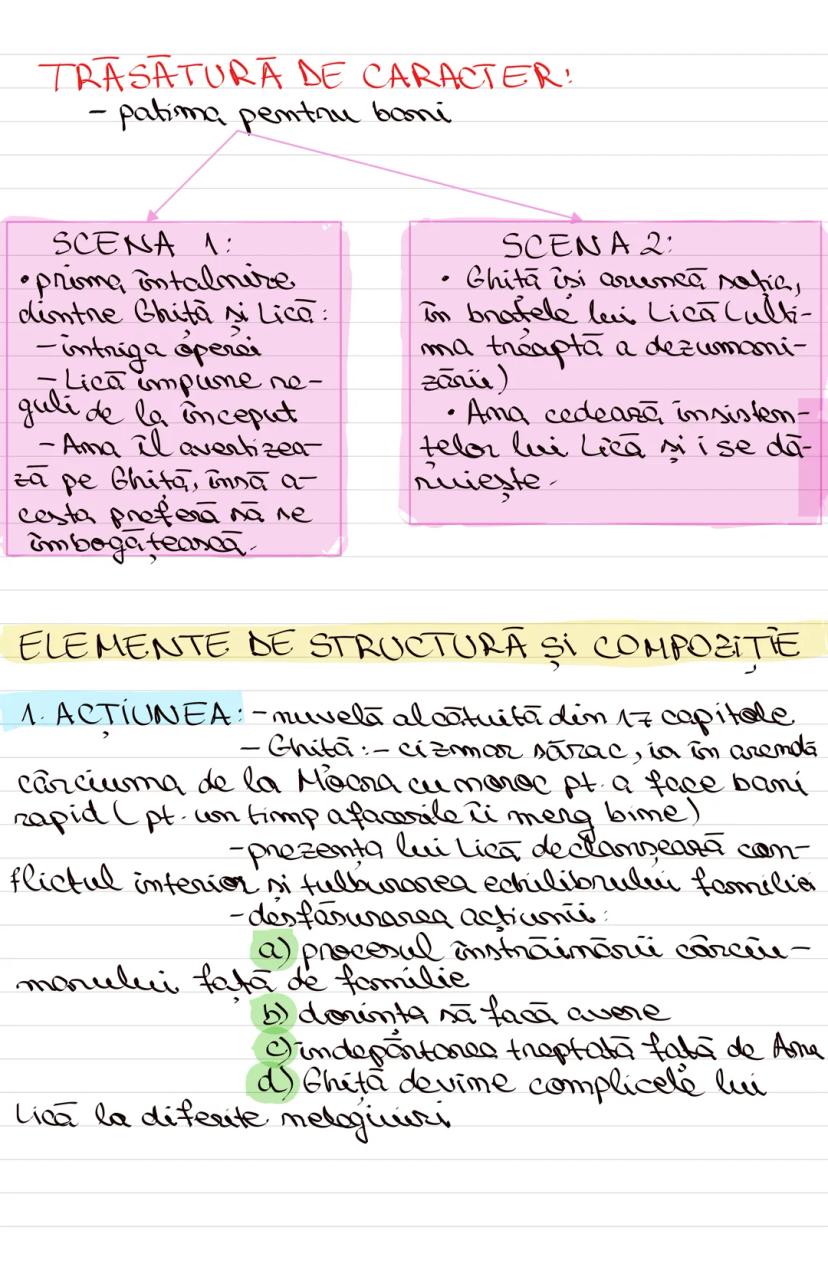 TRĂSĂTURĂ DE CARACTER:
- patima pentru bani
SCENA 1:
• prima întalnire
dintre Ghiță și Lică:
- intriga operei
- Lică impune re-
guli de la început
- Ana îl avertizea-
ză pe Ghiță, însă a-
cesta preferă să se
îmbogățească.
SCENA 2:
• Ghiță își aruncă soția,
în brațele lui Lică (ulti-
ma treaptă a dezumani-
zării)
• Ana cedează insisten-
țelor lui Lică și i se dă-
ruiește.
ELEMENTE DE STRUCTURĂ ȘI COMPOZIȚIE
1. ACȚIUNEA: - nuvelă alcătuită din 17 capitole
- Ghiță: - cizmar sărac, ia în arendă
cârciuma de la Moara cu noroc pt. a face bani
rapid (pt. un timp afacerile îi merg bine)
- prezența lui Lică declanșează con-
flictul interior și tulburarea echilibrului familiei
- desfășurarea acțiunii:
a) procesul înstrăinării cârciu-
marului față de familie
b) dorința să facă avere
c) îndepărtarea treptată față de Ana
d) Ghiță devine complicele lui
Lică la diferite nelegiuiri